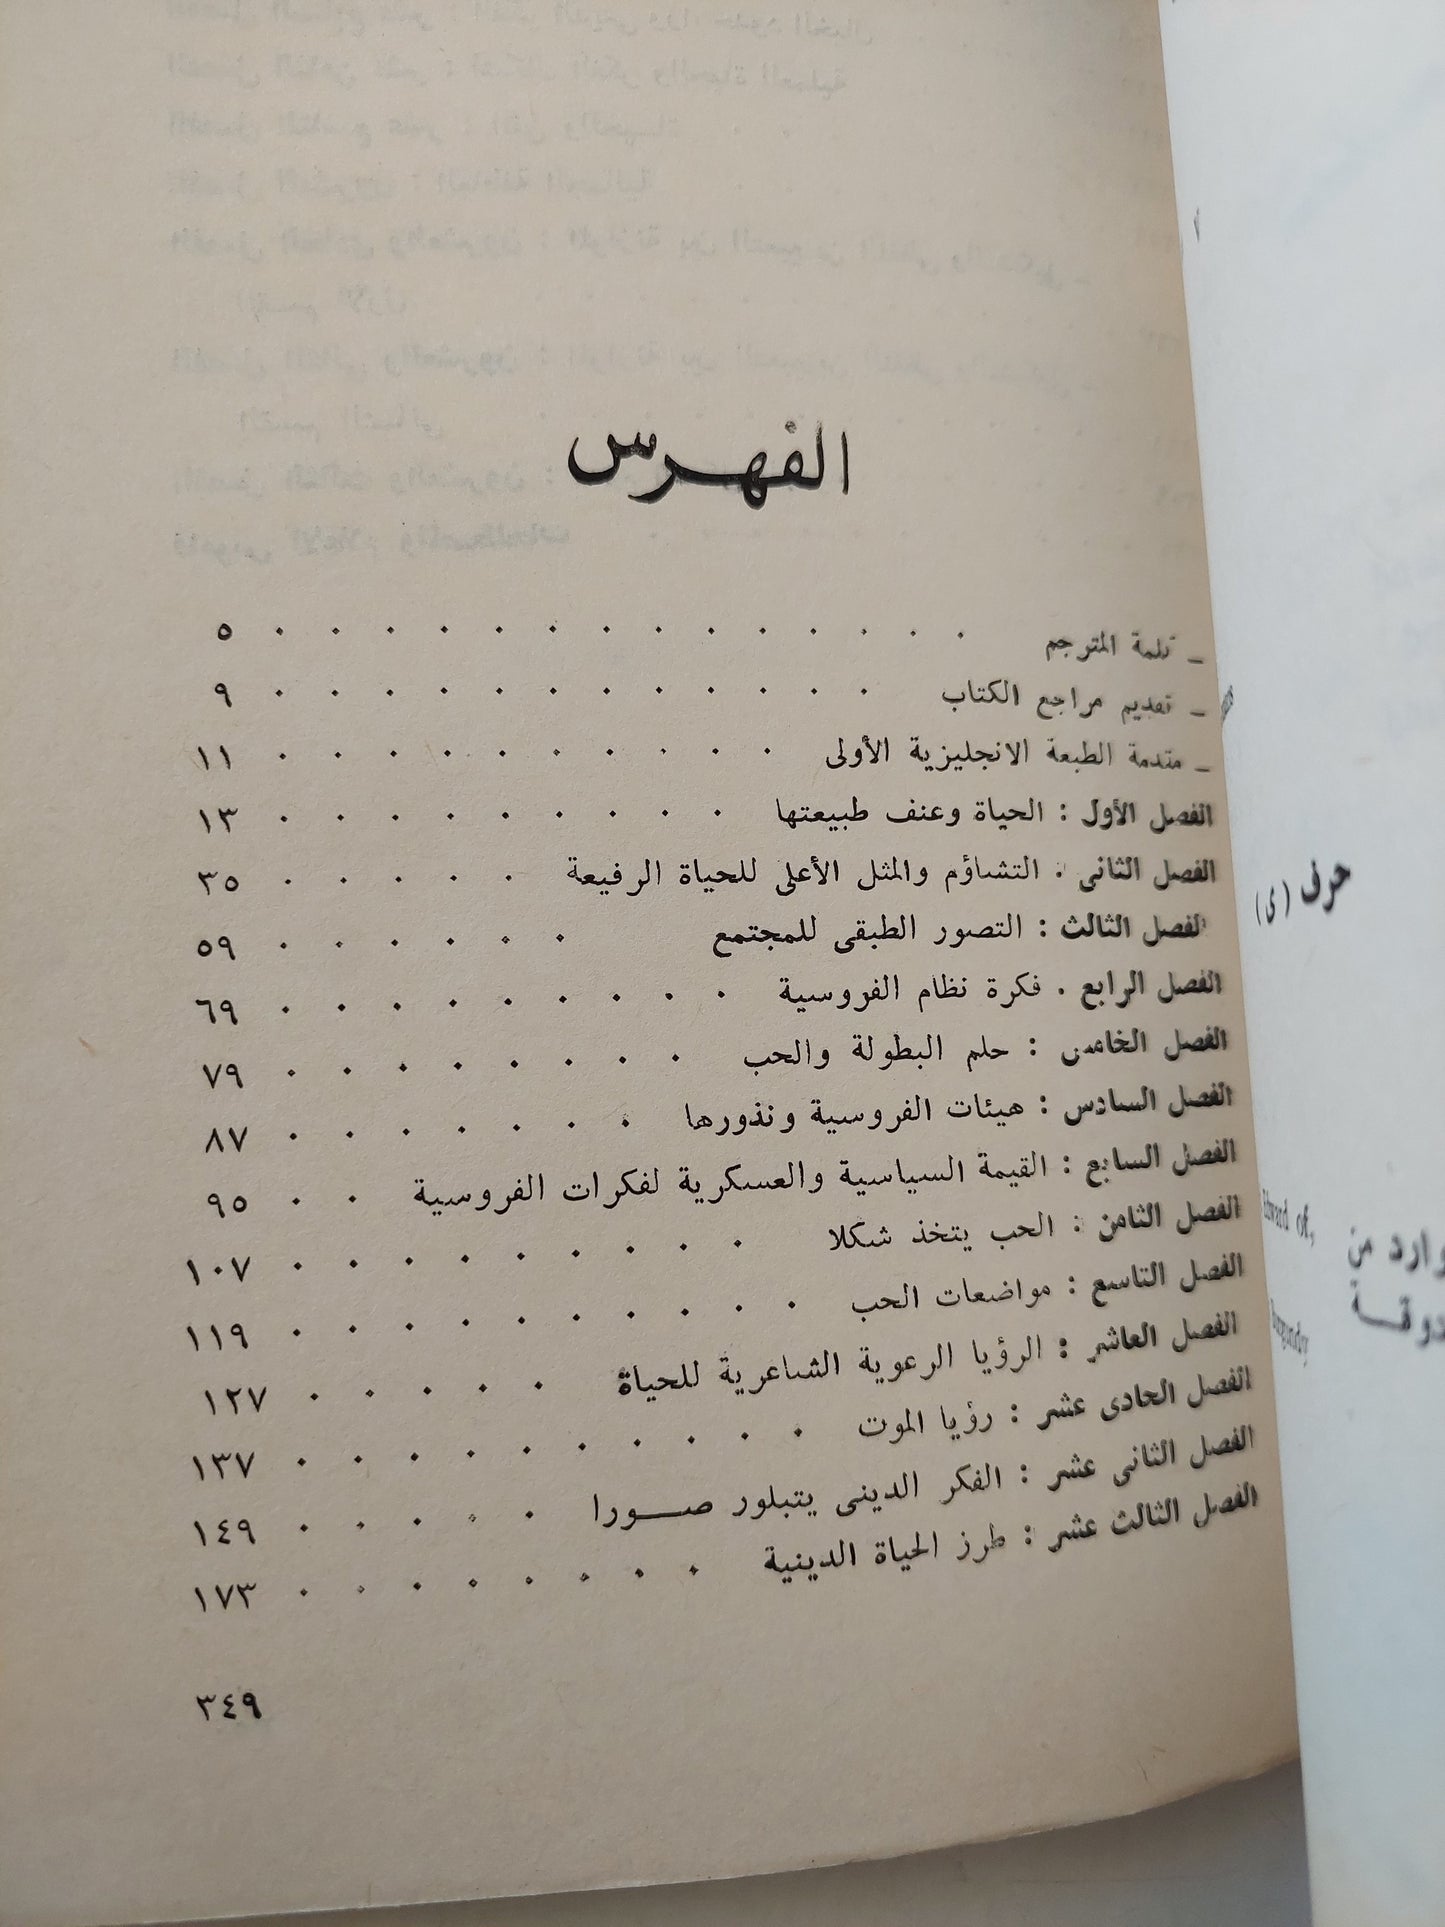 الفهرس
_ كلمة المترجم . . . . . . . . . . . . . . ٥
_ تقديم مراجع الكتاب . . . . . . . . . . . . ٩
_ مقدمة الطبعة الانجليزية الأولى . . . . . . . . . . ١١
الفصل الأول : الحياة وعنف طبيعتها . . . . . . . . . ١٣
الفصل الثانى . التشاؤم والمثل الأعلى للحياة الرفيعة . . . . . ٣٥
الفصل الثالث : التصور الطبقى للمجتمع . . . . . . ٥٩
الفصل الرابع . فكرة نظام الفروسية . . . . . . . . . ٦٩
الفصل الخامس : حلم البطولة والحب . . . . . . . . ٧٩
الفصل السادس : هيئات الفروسية ونذورها . . . . . . . ٨٧
الفصل السابع : القيمة السياسية والعسكرية لفكرات الفروسية . . ٩٥
الفصل الثامن : الحب يتخذ شكلا . . . . . . . . . ١٠٧
الفصل التاسع : مواضعات الحب . . . . . . . . . . ١١٩
الفصل العاشر : الرؤيا الرعوية الشاعرية للحياة . . . . . ١٢٧
الفصل الحادى عشر : رؤيا الموت . . . . . . . . . . ١٣٧
الفصل الثانى عشر : الفكر الدينى يتبلور صـــورا . . . . . ١٤٩
الفصل الثالث عشر : طرز الحياة الدينية . . . . . . . . ١٧٣
٣٤٩
حرف (ى)
Edward of,
وارد من
Burgundy
دوقـــة